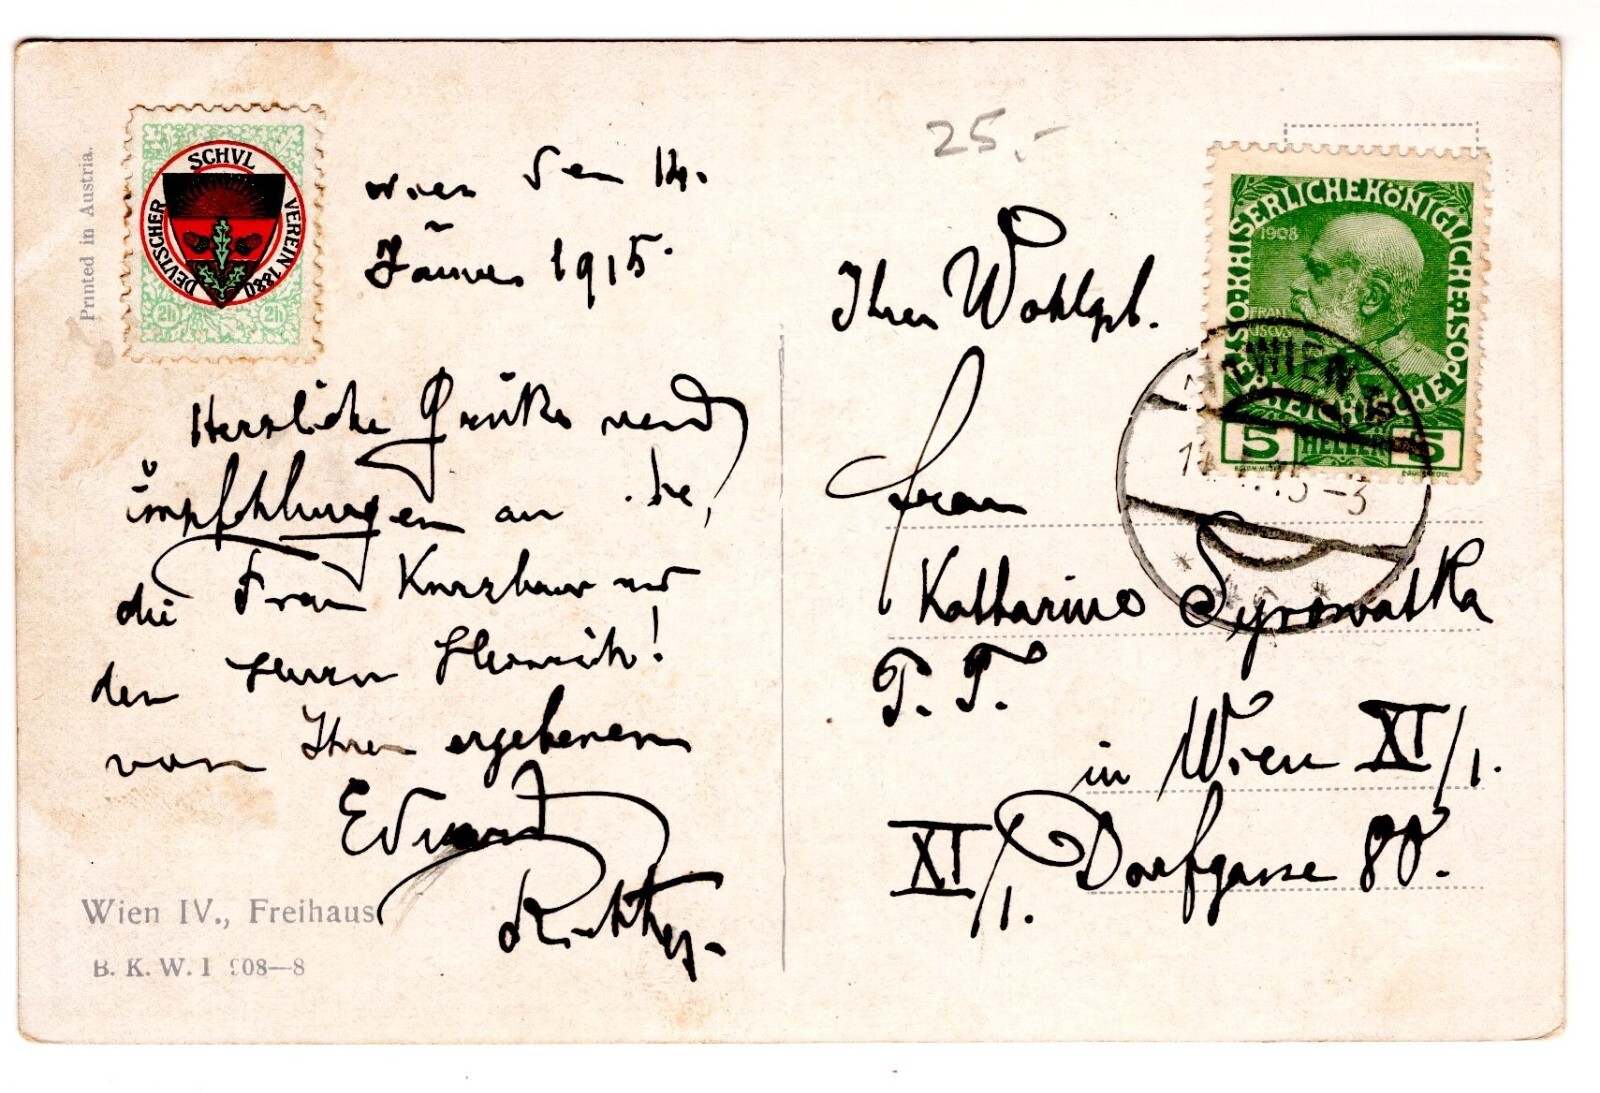 Printed in Austria.
DEVTSCHER SCHVL VEREIN 1880
2h 2h
Wien den 14.
Jänner 1915.
25.-
Herzliche Grüße und
Empfehlungen an
die Frau Kurzbauer und
den Herrn Heinrich!
von Ihrem ergebenen
Eduard
Wien IV., Freihaus
B. K. W. I 908—8
KAISERLICHE KÖNIGLICHE
ÖSTERREICHISCHE POST
1908
FRAN
CISCVS
5 HELLER 5
WIEN
Ihrer Wohlgb.
Frau
Katharina Syrowatka
P. T.
in Wien XI/1.
XI/1. Dorfgasse 80.